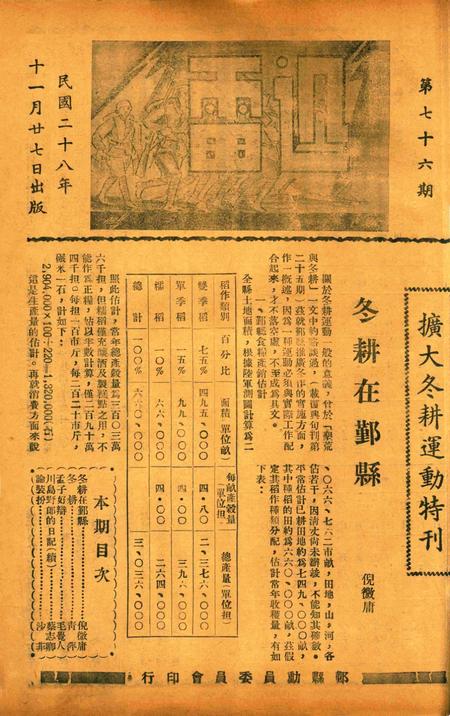 第七十六期
民國二十八年
十一月廿七日出版
擴大冬耕運動特刊
冬耕在鄞縣
倪徵庸
關於冬耕運動一般的意義,曾於「墾荒
與冬耕」一文中約略談過,(載
二十五期)茲就鄞縣推廣冬作的實施方面,
作一概述,因為一種運動必須與實際工作配
合起來,才不落空虛,不至成為具文。
一、鄞縣食糧產銷估計
全縣土地面積,根據陸軍測圖計算為二
〇六六、七六二市畝,田地,山,河,各
佔若干,因清丈尚未辦竣,不能知其種數。
平常估計已耕田地約為七四九、〇〇〇畝,
其中種稻的田約為六六〇、〇〇〇畝,茲假
定其稻作種類分配,估計常年收穫量,有如
下表:
稻作類別 百分比 面積(單位畝) 每畝產穀量(單位担) 總產量(單位担)
雙季稻 七五% 四九五、〇〇〇 四・八〇 二、三七六、〇〇〇
單季稻 一五% 九九、〇〇〇 四・〇〇 三九六、〇〇〇
糯稻 一〇% 六六、〇〇〇 四・〇〇 二六四、〇〇〇
總計 一〇〇% 六六〇、〇〇〇 三、〇三六、〇〇〇
照此估計,常年總產穀量為三百〇三萬
六千担,但糯稻僅充釀酒及製糕點之用,不
能作為正糧,姑以半數計算,僅二百九十萬
四千担。每担一百市斤,每二百二十市斤,
碾米一石,計如下:
2,904,000×100÷220=1,320,000(石)
這是生產量的估計。再就消費方面來說
本期目次
冬耕在鄞縣 倪徵庸
冬耕 青萍
孟子好辯 毛養人
川島野郎的日記(續) 蔡志卿
論裝扮 沙非
鄞縣動員委員會印行